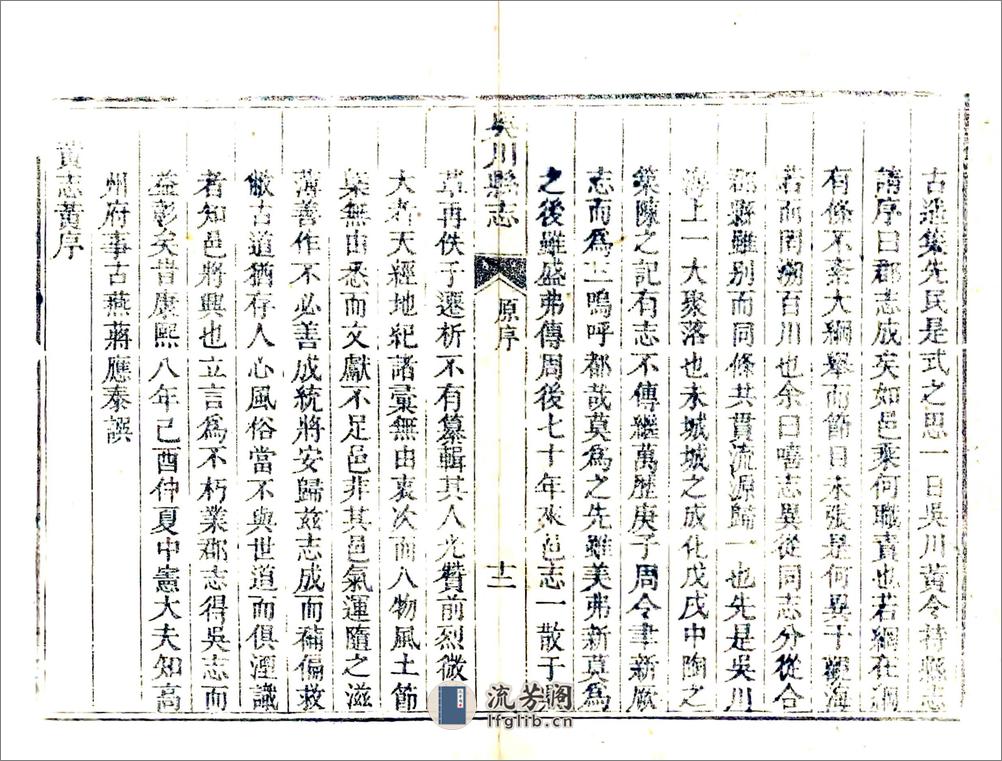 古遥集先民是式之思一日吳川黃令持縣志
請序曰郡志成矣如邑乘何職責也若綱在綱
有條不紊大綱舉而節目未張是何異于觀海
若而罔溯百川也余曰嘻志異從同志分從合
郡縣雖别而同條共貫流源歸一也先是吳川
海上一大聚落也未城城之成化戊戌中陶之
築陳之記有志不傳繼萬歷庚子周令聿新厥
志而為二嗚呼都哉莫為之先雖美弗新莫為
之後雖盛弗傳周後七十年來邑志一散于
吳川縣志
原序
十二
草再佚于遷析不有纂輯其人光贊前烈微
大者天經地紀諸彙無由裒次而人物風土節
槩無由悉而文獻不足邑非其邑氣運隨之滋
薄善作不必善成統將安歸兹志成而補偏救
敝古道猶存人心風俗當不與世道而俱湮識
者知邑將興也立言為不朽業郡志得吳志而
益彰矣昔康熙八年己酉仲夏中憲大夫知高
州府事古燕蔣應泰譔
黃志黃序
流芳阁
lfglib.cn